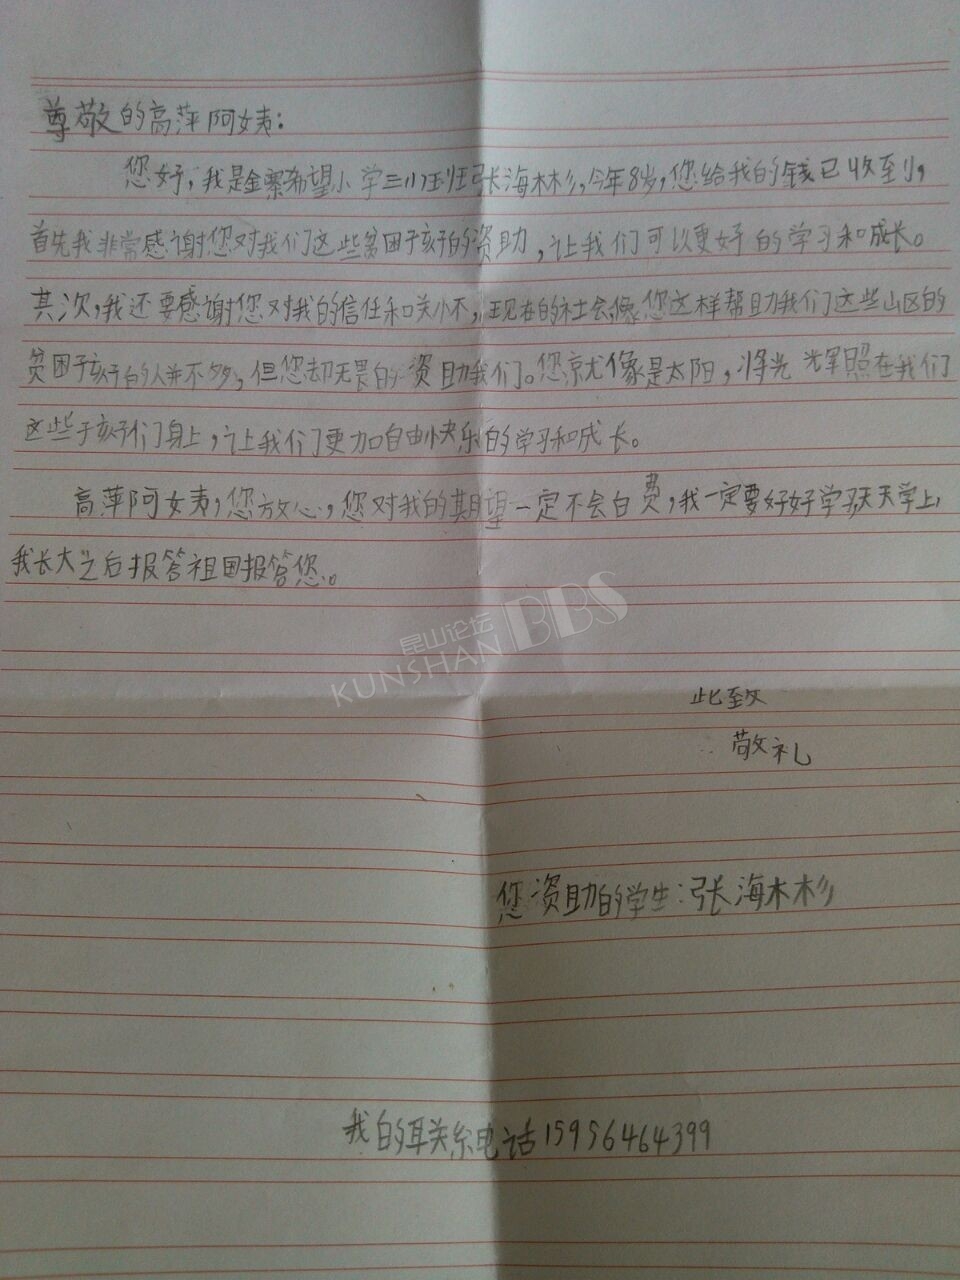 尊敬的高萍阿姨：
您好，我是金寨希望小学三（1）班张海彬，今年8岁，您给我的钱已收到，
首先我非常感谢您对我们这些贫困孩子的资助，让我们可以更好的学习和成长。
其次，我还要感谢您对我的信任和关怀，现在的社会像您这样帮助我们这些山区的
贫困孩子的人并不多，但您却无畏的资助我们。您就像是太阳，将光辉照在我们
这些孩子们身上，让我们更加自由快乐的学习和成长。
高萍阿姨，您放心，您对我的期望一定不会白费，我一定要好好学习天天学上，
我长大之后报答祖国报答您。
昆山论坛
KUNSHAN BBS
此致
敬礼
您资助的学生：张海彬
我的联系电话15956464399